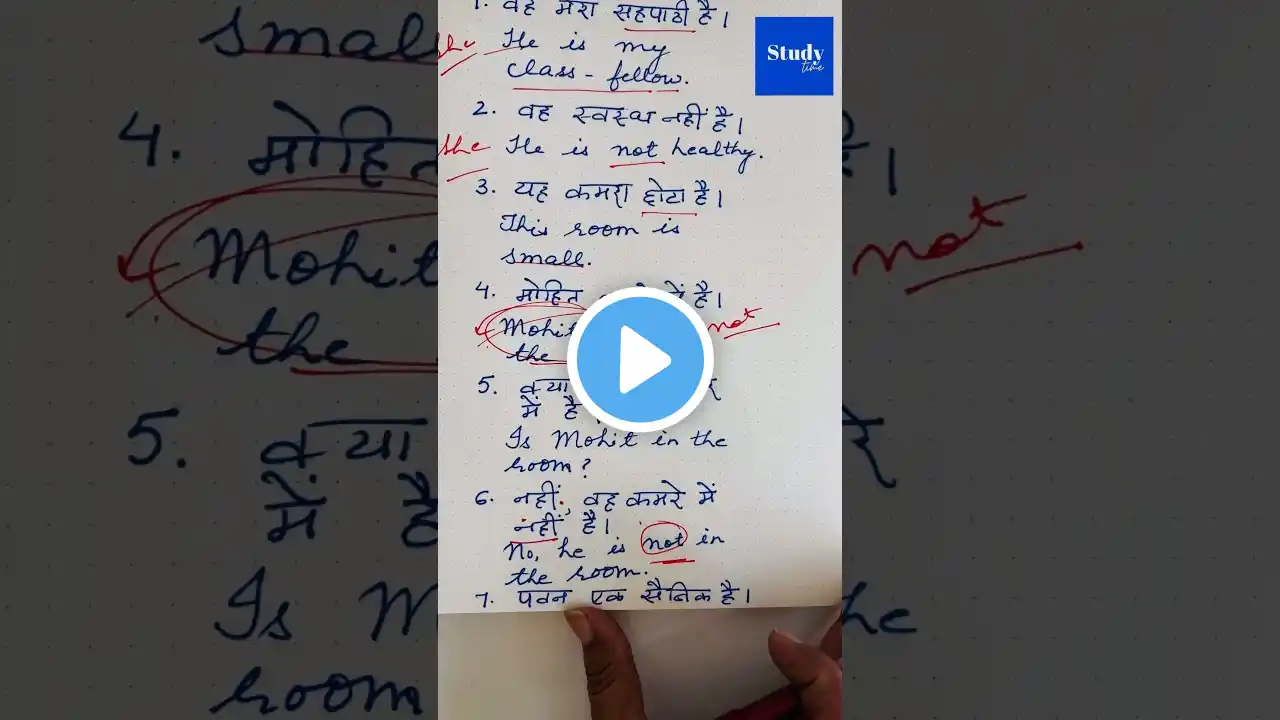 Study
time
1. वह मेरा सहपाठी है।
she He is my
class - fellow.
2. वह स्वस्थ नहीं है।
she He is not healthy.
3. यह कमरा छोटा है।
This room is
small.
4. मोहित में है।
Mohit not
the
5. क्या
में है
Is Mohit in the
room?
6. नहीं, वह कमरे में
नहीं है।
No, he is not in
the room.
7. पवन एक सैनिक है।
small
4. मोहित है।
Mohit not
the
5. क्या रे
में है
Is the
room